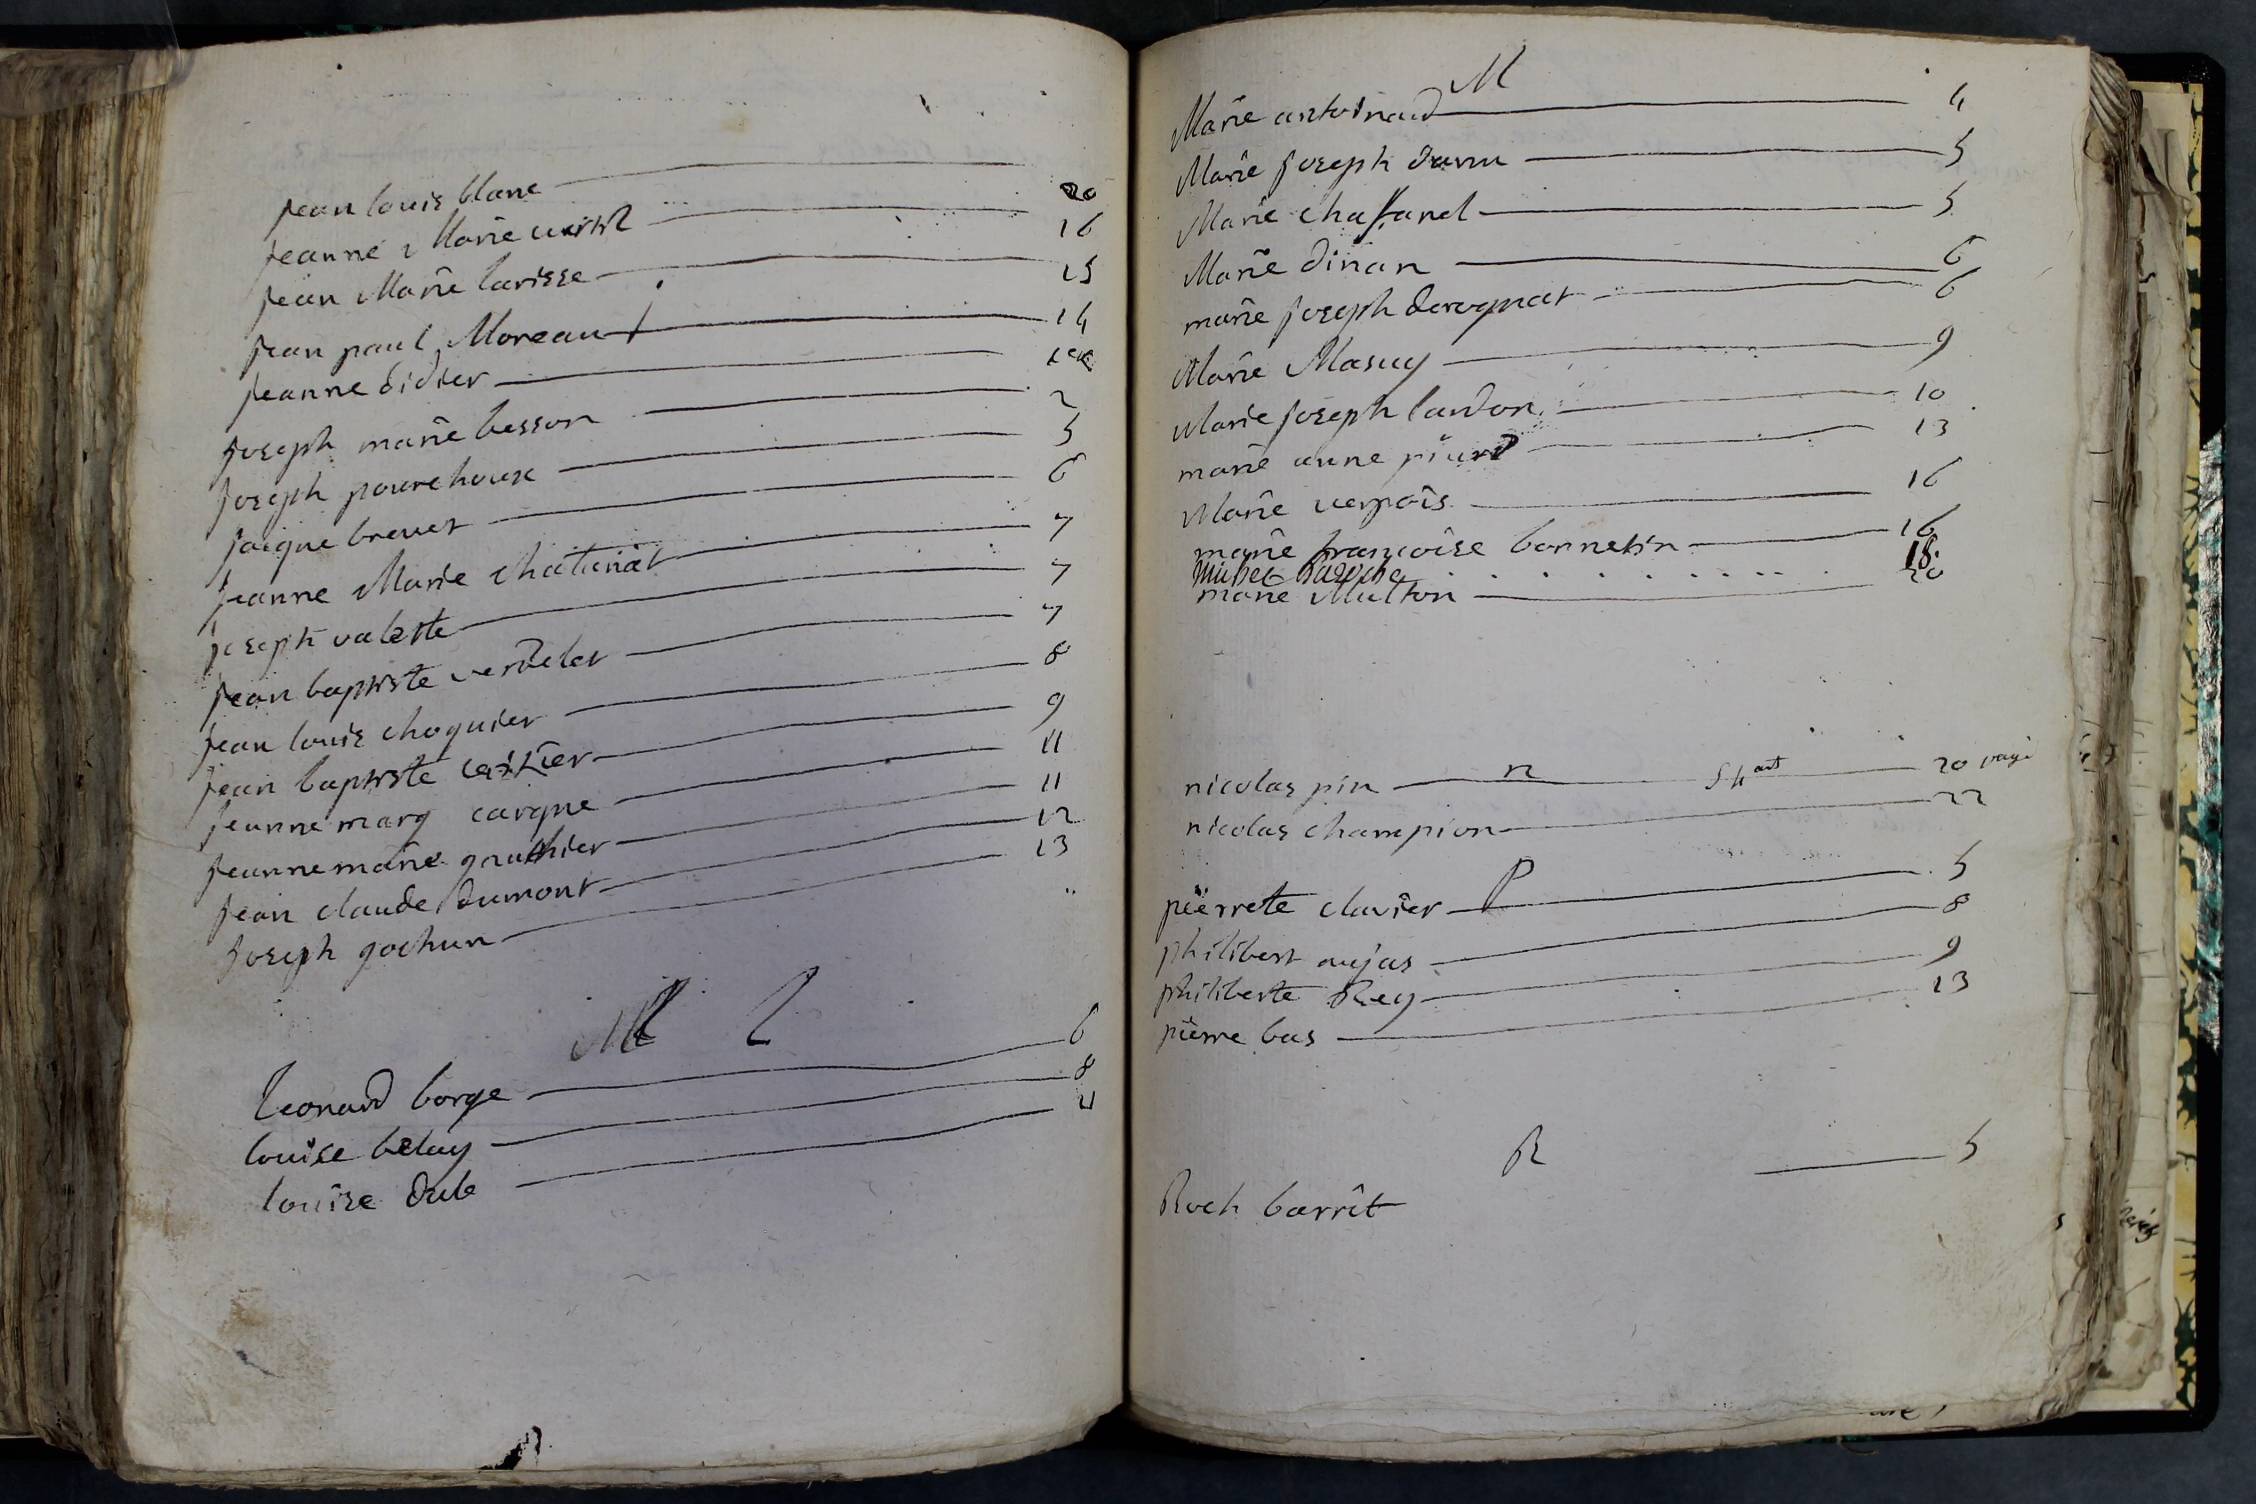 jean louis blanc 20
jeanne Marie 16
jean Marie larisse 15
jean paul Moreau 14
jeanne didier
joseph marie besson 2
joseph pourchoux 5
jaique brevet 6
jeanne Marie chatanat 7
joseph valette 7
jean baptiste verdelet 7
jean louis choquier 8
jean baptiste 9
jeanne marg carque 11
jeanne marie gauthier 11
jean claude dumont 12
joseph gochun 13
M L
Leonard borge 6
louise belay 8
louise dule 11
M
Marie antoinaid 4
Marie joseph 5
Marie chassanel 5
Marie dinan 6
marie joseph derognat 6
Marie Masuy 9
Marie joseph lardon 10
marie anne 13
Marie verpois 16
marie francoise bonnetin 16
Baroche 18.
marie Multon 20
n
nicolas pin 20 page
nicolas champion 22
P
pierrete clavier 5
philibert aujas 8
philiberte Rey 9
pierre bas 13
R
Roch barrit 5